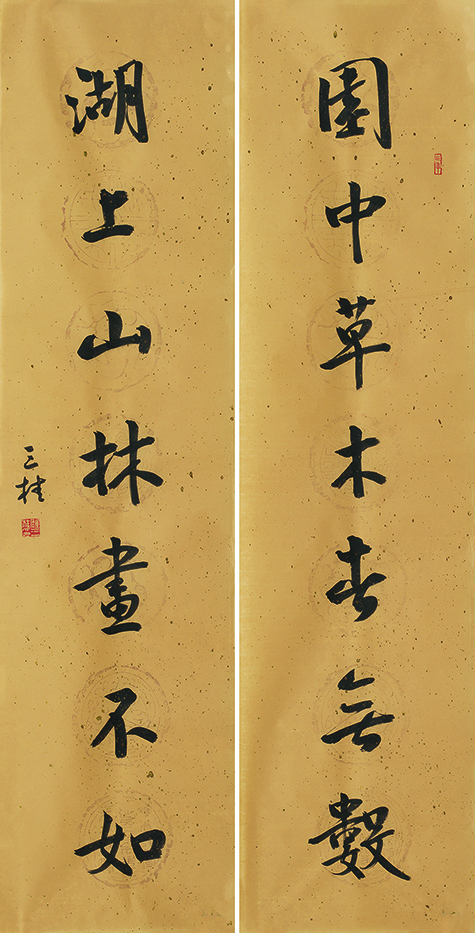 園中草木春無數
湖上山林畫不如
三桂